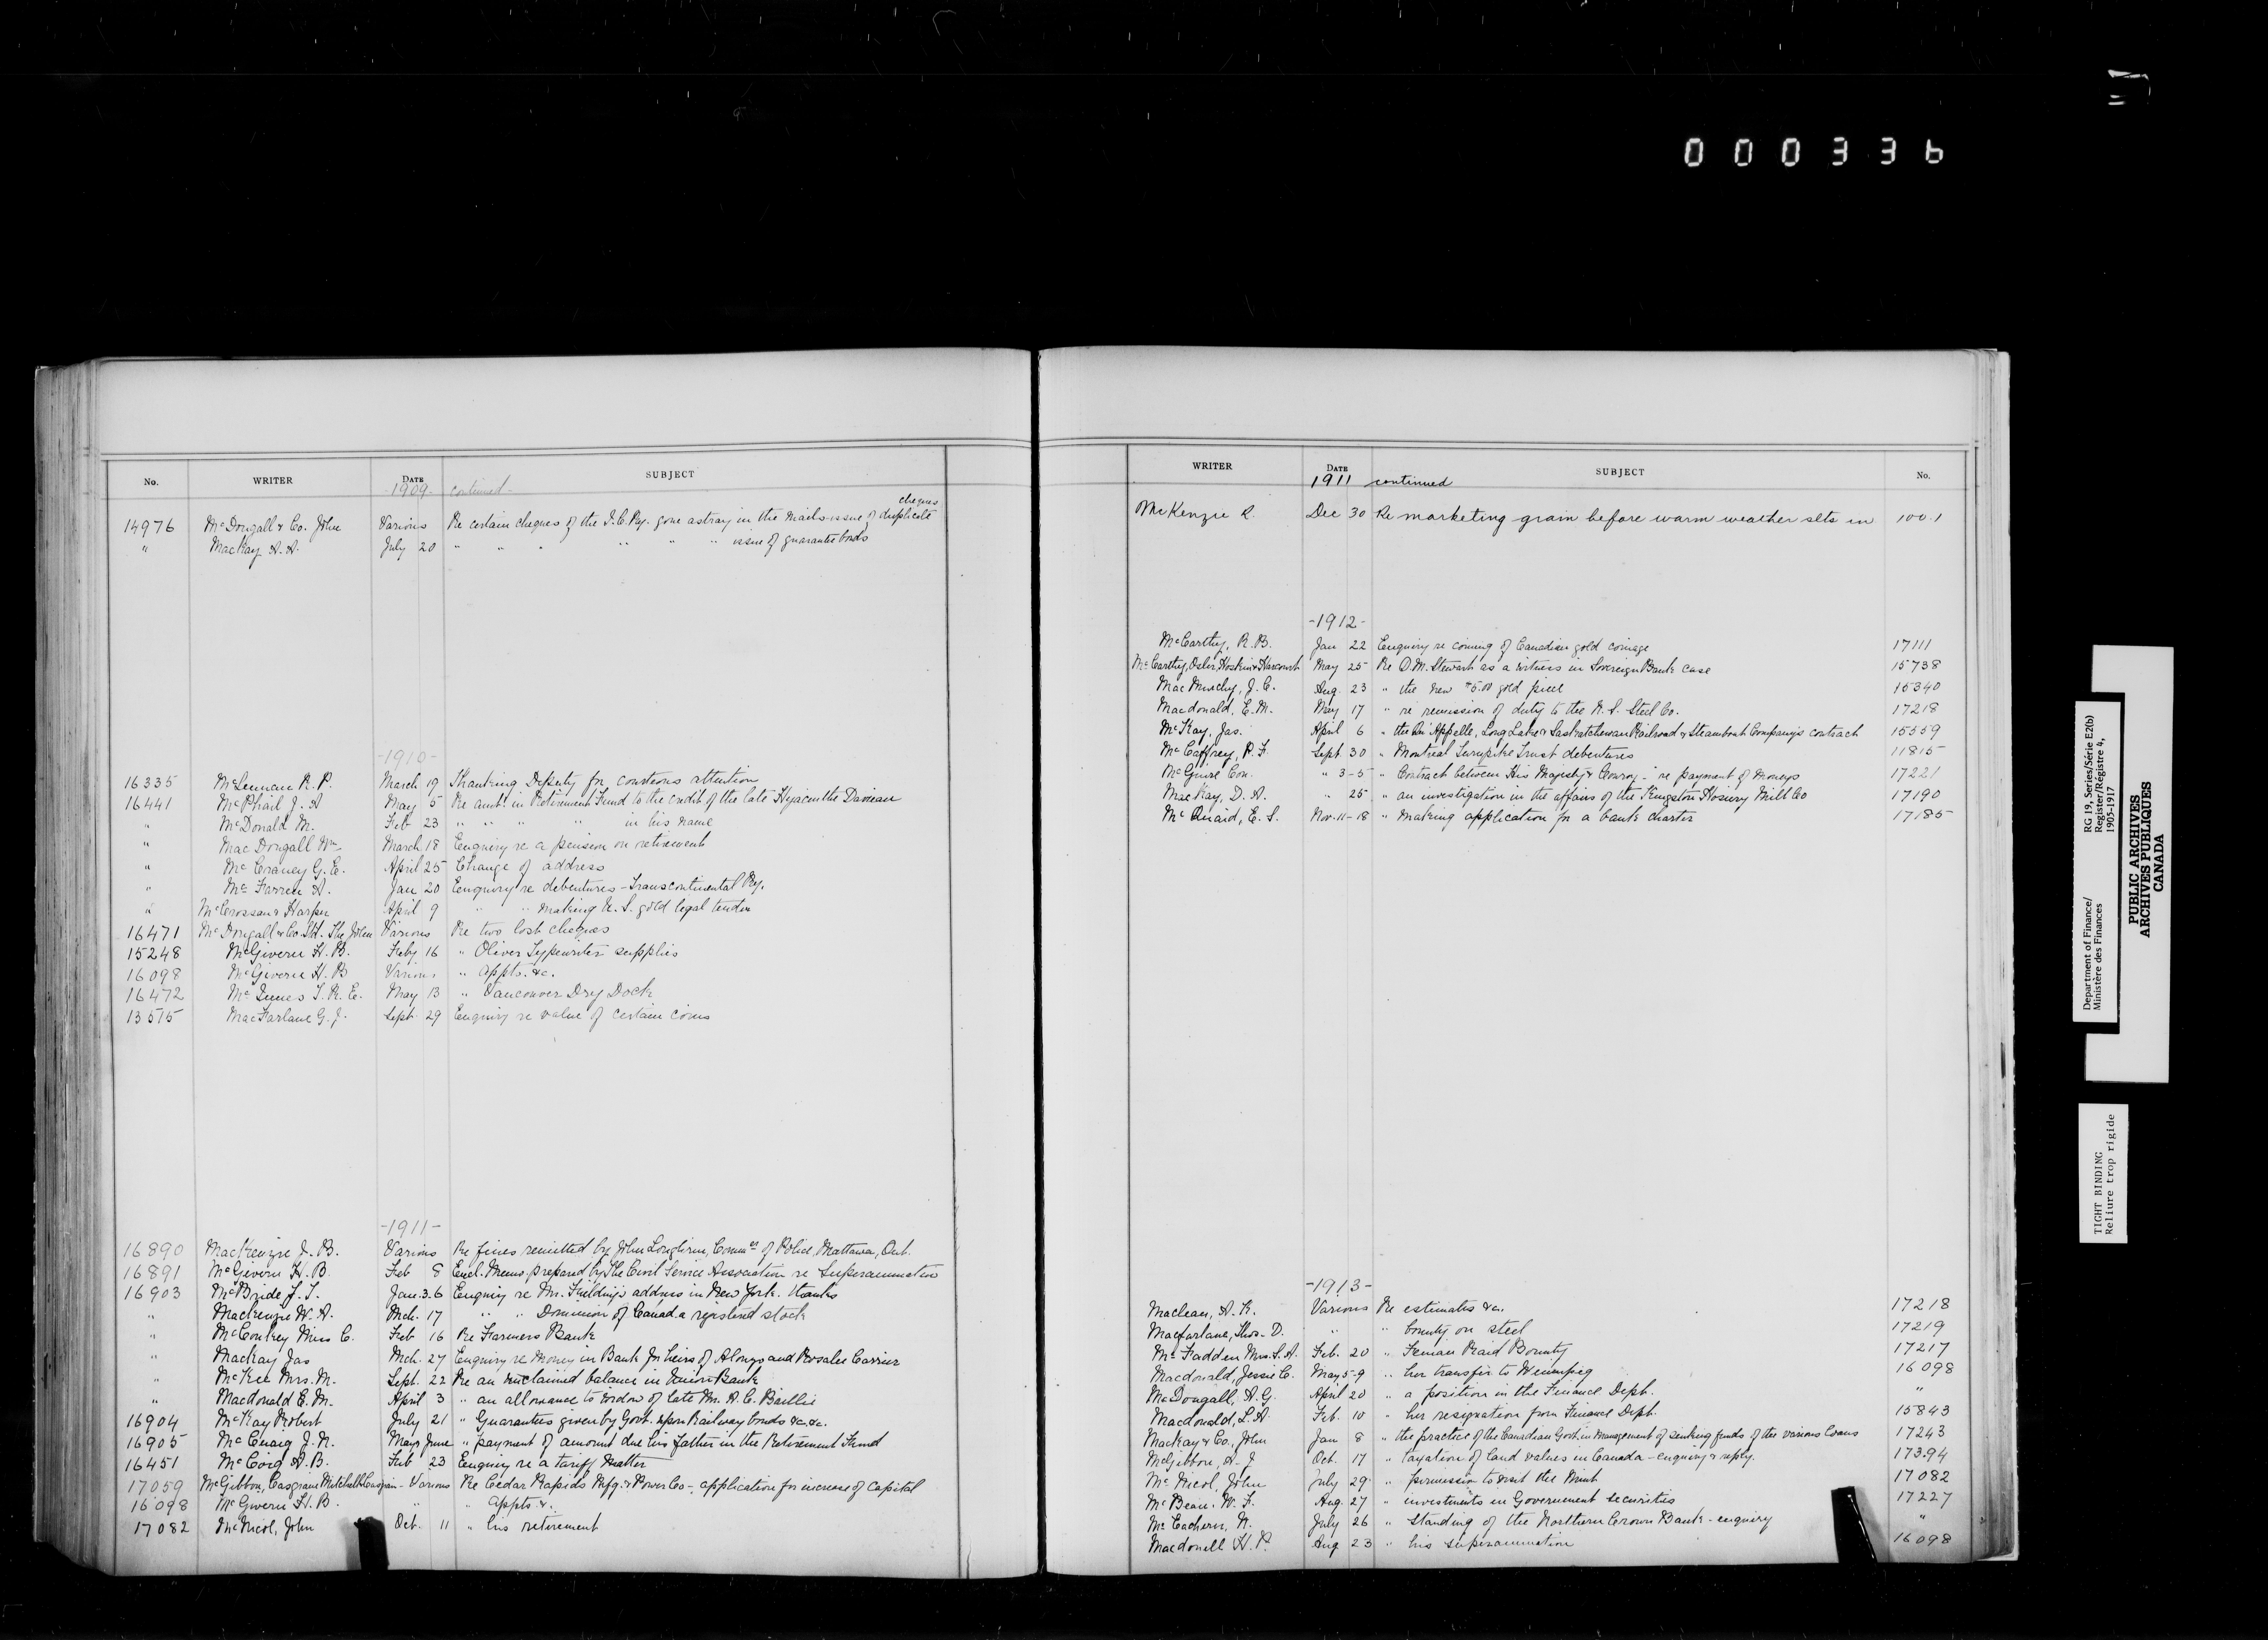 000336
No. WRITER DATE SUBJECT
-1909- continued-
cheques
14976 McDougall & Co. John Various Re certain cheques of the I.C.Ry. gone astray in the mails-issue of duplicate
" MacKay A. A. July 20 " " " " " " issue of guarantee bonds
-1910-
16335 McLennan R. P. March 19 Thanking Deputy for courteous attention
16441 McPhail J. A May 5 Re amt. in Retirement Fund to the credit of the late Hyacinthe
" McDonald M. Feb 23 " " " " in his name
" MacDougall Wm. March 18 Enquiry re a pension on retirement
" McCraney G. E. April 25 Change of address
" McFarren A. Jan 20 Enquiry re debentures - Transcontinental Ry.
" McCrossan & Harper April 9 " " making U. S. gold legal tender
16471 McDougall & Co. Ltd. The John Various Re two lost cheques
15248 McGivern H. B. Feby. 16 " Oliver Typewriter supplies
16098 McGivern H. B Various " appts. &c.
16472 McInnes T. R. E. May 13 " Vancouver Dry Dock
13575 MacFarlane G. J. Sept. 29 Enquiry re value of certain coins
-1911-
16890 MacKenzie J. B. Various Re fines remitted by John Loughrin, Commr of Police, Mattawa, Ont.
16891 McGivern H. B. Feb 8 Encl. Memo. prepared by The Civil Service Association re Superannuation
16903 McBride J. T. Jan. 3.6 Enquiry re Mr. Fielding's address in New York. thanks
" Mackenzie W. A. Mch. 17 " " Dominion of Canada registered stock
" McConkey Miss C. Feb 16 Re Farmers Bank
" Mackay Jas Mch. 27 Enquiry re Money in Bank for heirs of Alonzo and Rosalie Carrier
" McKee Mrs. M. Sept. 22 Re an unclaimed balance in Union Bank
" Macdonald E. M. April 3 " an allowance to widow of late Mr. A. C. Baillie
16904 McKay Robert July 21 " Guarantees given by Govt. upon Railway bonds &c. &c.
16905 McCuaig J. N. May & June " payment of amount due his father in the Retirement Fund
16451 McCoig A. B. Feb 23 Enquiry re a tariff matter
17059 McGibbon, Casgrain Mitchell & Casgrain - Various Re Cedar Rapids Mfg. & Power Co - application for increase of capital
16098 McGivern H. B. " " appts. &.
17082 McNicol, John Oct. 11 " his retirement
WRITER DATE SUBJECT No.
1911 continued
McKenzie R. Dec 30 Re marketing grain before warm weather sets in 100.1
-1912-
McCarthy, R. B. Jan 22 Enquiry re coining of Canadian gold coinage 17111
McCarthy, Osler, Hoskin & Harcourt May 25 Re D. M. Stewart as a witness in Sovereign Bank case 15738
MacMurchy, J. C. Aug. 23 " the new $5.00 gold piece 15340
Macdonald, E. M. May 17 " re remission of duty to the N. S. Steel Co. 17218
McKay, Jas. April 6 " the Qu'Appelle, Long Lake & Saskatchewan Railroad & Steamboat Company's contract 15559
McCaffrey, P. F. Sept. 30 " Montreal Turnpike Trust debentures 11815
McGuire Con. " 3-5 " Contract between His Majesty & Conroy - re payment of moneys 17221
MacKay, D. A. " 25 " an investigation in the affairs of the Kingston Hosiery Mill Co 17190
McQuaid, E. S. Nov. 11-18 " making application for a bank charter 17185
-1913-
Maclean, A. K. Various Re estimates &c. 17218
Macfarlane, Thos. D. " " bounty on steel 17219
McFadden Mrs. S. A. Feb. 20 " Fenian Raid Bounty 17217
Macdonald, Jessie C. May 5-9 " her transfer to Winnipeg 16098
McDougall, A. G. April 20 " a position in the Finance Dept. "
Macdonald, L. A. Feb. 10 " her resignation from Finance Dept. 15843
MacKay & Co., John Jan 8 " the practice of the Canadian Govt. in management of sinking funds of the various loans 17243
McGibbon, A. J Oct. 17 " Taxation of land values in Canada - enquiry & reply. 173.94
McNicol, John July 29 " permission to visit the Mint 17082
McBean, W. F. Aug. 27 " investments in Government securities 17227
McEachern, N. July 26 " Standing of the Northern Crown Bank - enquiry "
Macdonell H. P. Aug. 23 " his superannuation 16098
Department of Finance/
Ministère des Finances
RG 19, Series/Série E2(b)
Register/Régistre 4,
1905-1917
PUBLIC ARCHIVES
ARCHIVES PUBLIQUES
CANADA
TIGHT BINDING
Reliure trop rigide